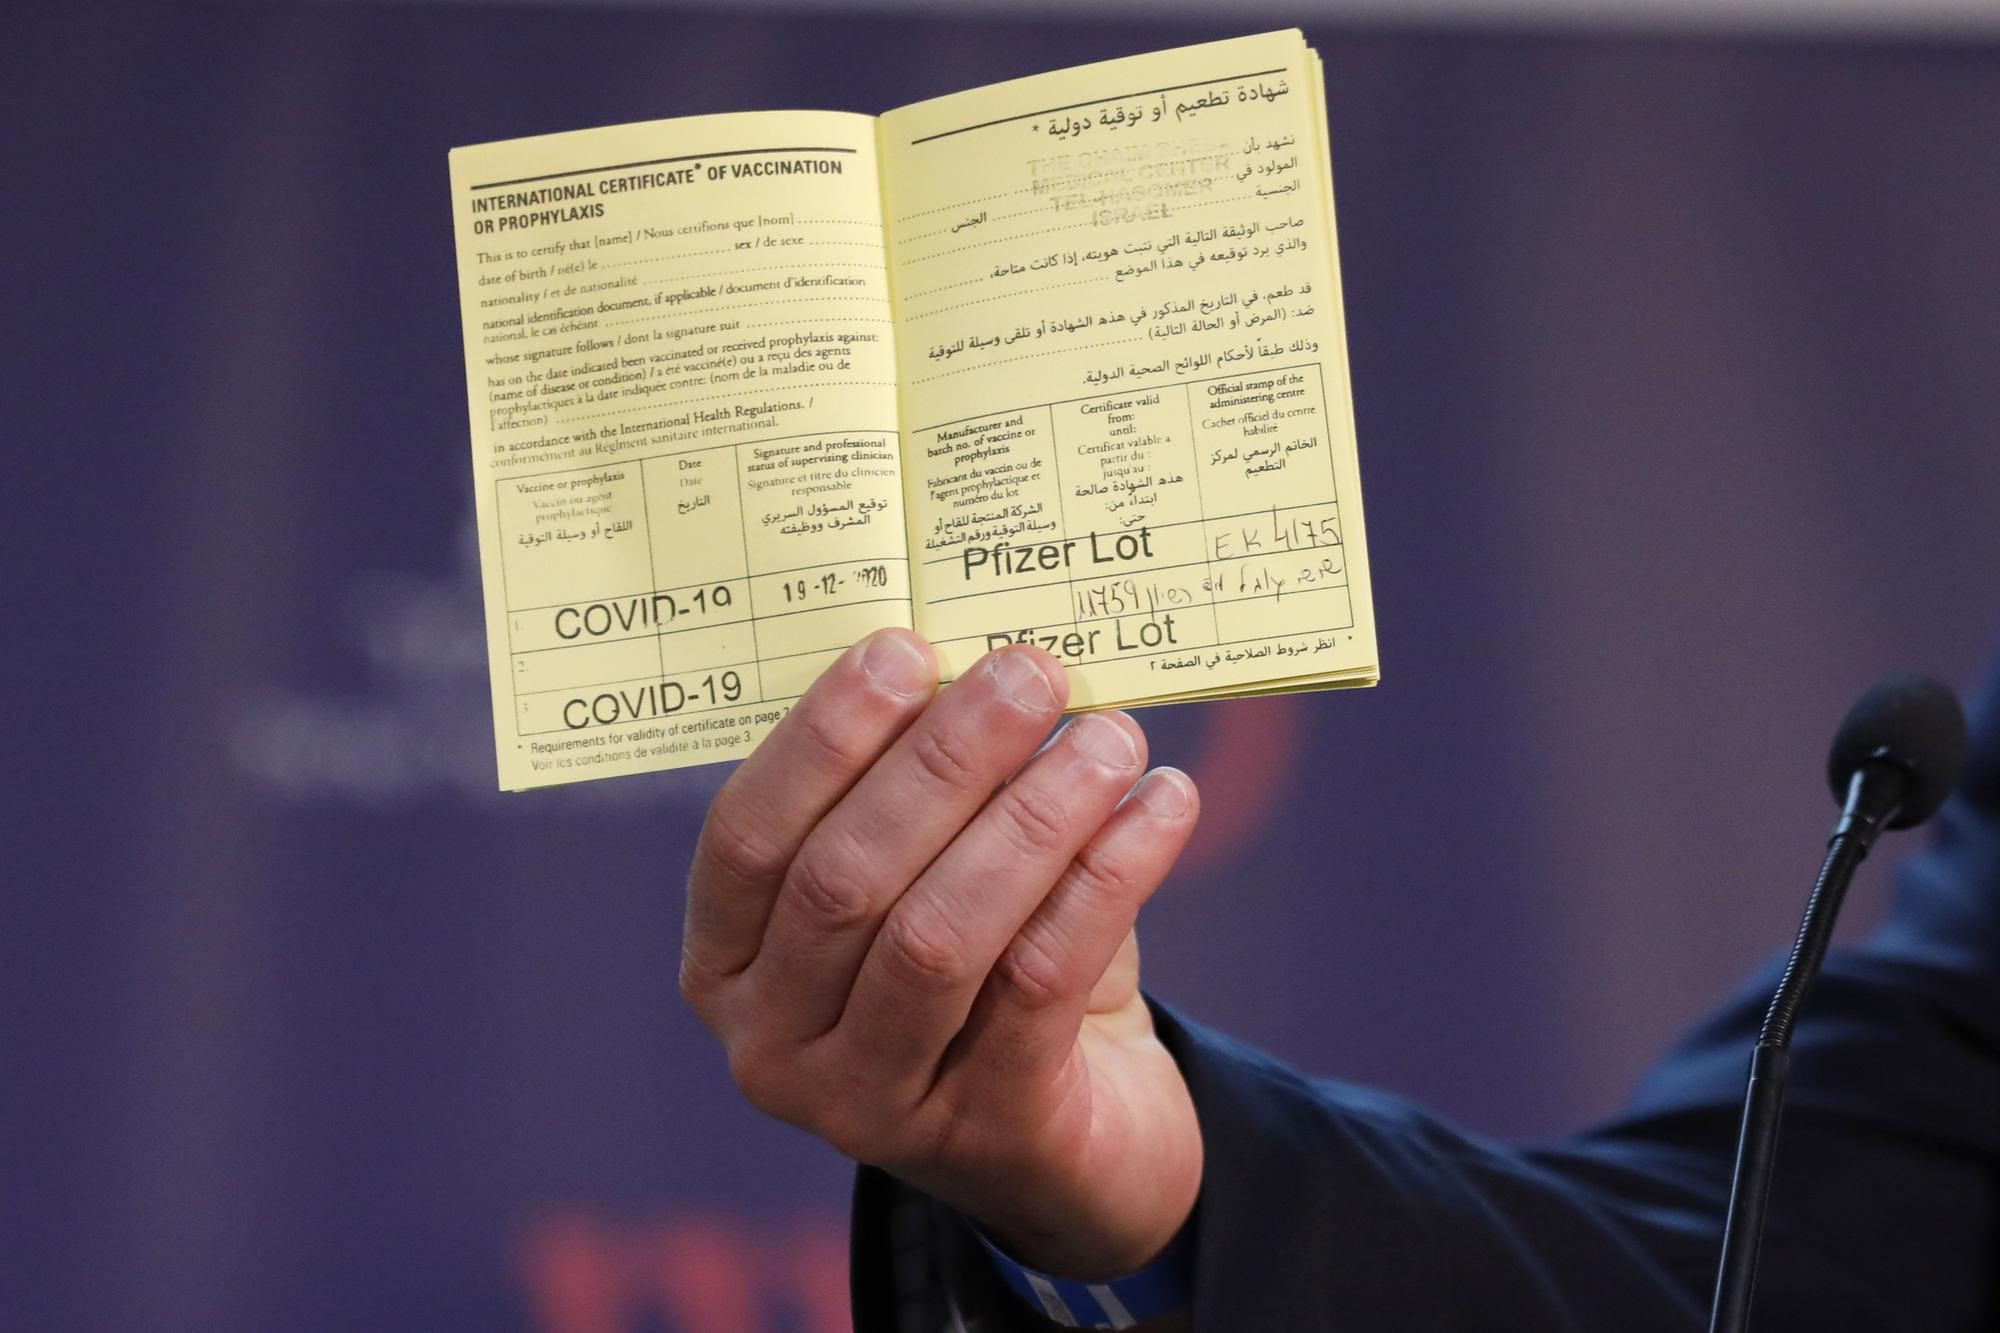 INTERNATIONAL CERTIFICATE* OF VACCINATION
OR PROPHYLAXIS
This is to certify that [name] / Nous certifions que [nom]
date of birth / né(e) le sex / de sexe
nationality / et de nationalité
national identification document, if applicable / document d'identification
national, le cas échéant
whose signature follows / dont la signature suit
has on the date indicated been vaccinated or received prophylaxis against:
(name of disease or condition) / a été vacciné(e) ou a reçu des agents
prophylactiques à la date indiquée contre: (nom de la maladie ou de
l'affection)
in accordance with the International Health Regulations. /
conformément au Règlment sanitaire international.
Vaccine or prophylaxis
Vaccin ou agent
prophylactique
اللقاح أو وسيلة التوقية
Date
Date
التاريخ
Signature and professional
status of supervising clinician
Signature et titre du clinicien
responsable
توقيع المسؤول السريري
المشرف ووظيفته
1. COVID-19 19-12- 2020
2.
3. COVID-19
* Requirements for validity of certificate on page
Voir les conditions de validité à la page 3.
شهادة تطعيم أو توقية دولية *
THE CHAIM SHEBA
MEDICAL CENTER
TEL-HASOMER
ISRAEL
نشهد بأن
المولود في
الجنسية الجنس
صاحب الوثيقة التالية التي تثبت هويته، إذا كانت متاحة،
والذي يرد توقيعه في هذا الموضع
قد طعم، في التاريخ المذكور في هذه الشهادة أو تلقى وسيلة للتوقية
ضد: (المرض أو الحالة التالية)
وذلك طبقاً لأحكام اللوائح الصحية الدولية.
Manufacturer and
batch no. of vaccine or
prophylaxis
Fabricant du vaccin ou de
l'agent prophylactique et
numéro du lot
الشركة المنتجة للقاح أو
وسيلة التوقية ورقم التشغيلة
Certificate valid
from:
until:
Certificat valable a
partir du :
jusqu'au :
هذه الشهادة صالحة
ابتداءً من:
حتى:
Official stamp of the
administering centre
Cachet officiel du centre
habilité
الخاتم الرسمي لمركز
التطعيم
Pfizer Lot EK 4175
11759
Pfizer Lot
* انظر شروط الصلاحية في الصفحة ٢